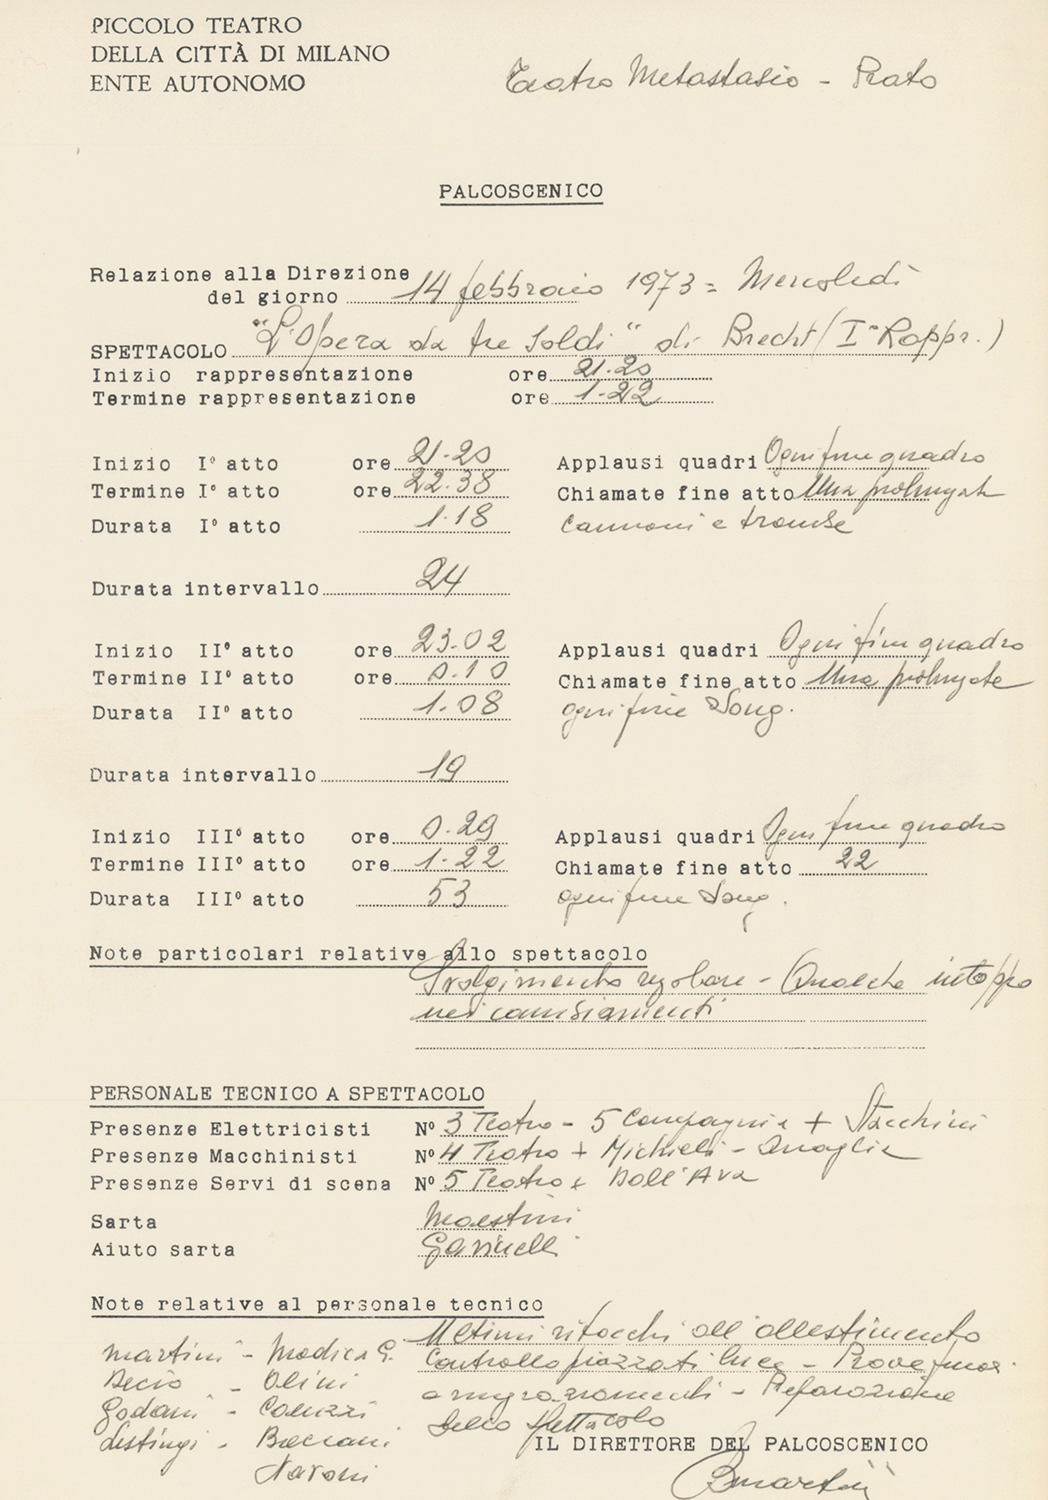 PICCOLO TEATRO
DELLA CITTÀ DI MILANO
ENTE AUTONOMO
Teatro Metastasio - Prato
PALCOSCENICO
Relazione alla Direzione
del giorno 14 febbraio 1973 = Mercoledì
SPETTACOLO "L'Opera da tre Soldi" di Brecht (Iª Rappr.)
Inizio rappresentazione ore 21.20
Termine rappresentazione ore 1.22
Inizio I° atto ore 21.20 Applausi quadri Ogni fine quadro
Termine I° atto ore 22.38 Chiamate fine atto Una prolungata
Durata I° atto 1.18 Cannoni e trombe
Durata intervallo 24
Inizio II° atto ore 23.02 Applausi quadri Ogni fine quadro
Termine II° atto ore 0.10 Chiamate fine atto Una prolungata
Durata II° atto 1.08 ogni fine Song.
Durata intervallo 19
Inizio III° atto ore 0.29 Applausi quadri Ogni fine quadro
Termine III° atto ore 1.22 Chiamate fine atto 22
Durata III° atto 53 ogni fine Song.
Note particolari relative allo spettacolo
Svolgimento regolare - Qualche intoppo
nei cambiamenti
PERSONALE TECNICO A SPETTACOLO
Presenze Elettricisti N° 3 Teatro - 5 Compagnia + Stacchini
Presenze Macchinisti N° 4 Teatro + Michieli - Quaglia
Presenze Servi di scena N° 5 Teatro + Dall'Ava
Sarta Maestrini
Aiuto sarta Gavinelli
Note relative al personale tecnico
Ultimi ritocchi all'allestimento
Martini - Modica G. Controllo piazzati luce - Prove
Decio - Olini Preparazione
Godani - Colizzi dello spettacolo
IL DIRETTORE DEL PALCOSCENICO
Bmartini